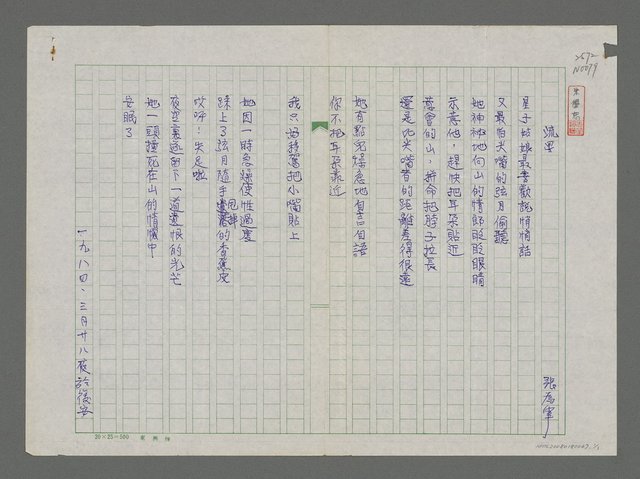 2572
N0079
流星
張為軍
星子姑娘最喜歡說悄悄話
又最怕尖嘴的弦月偷聽
她神秘地向山的情郎眨眨眼睛
示意他,趕快把耳朵貼近
意會的山,拚命把脖子拉長
還是比尖嘴者的距離差得很遠
她有點兒燥急地自言自語
你不把耳朵靠近
我只好移駕把小嘴貼上
她因一時急躁使性過度
踩上了弦月隨手甩掉的香蕉皮
哎呀!失足啦
夜空裏迤的下一道遺恨的光芒
她一頭撞死在山的情懷中
安眠了
一九八四.三月廿八夜於後安
20×25=500